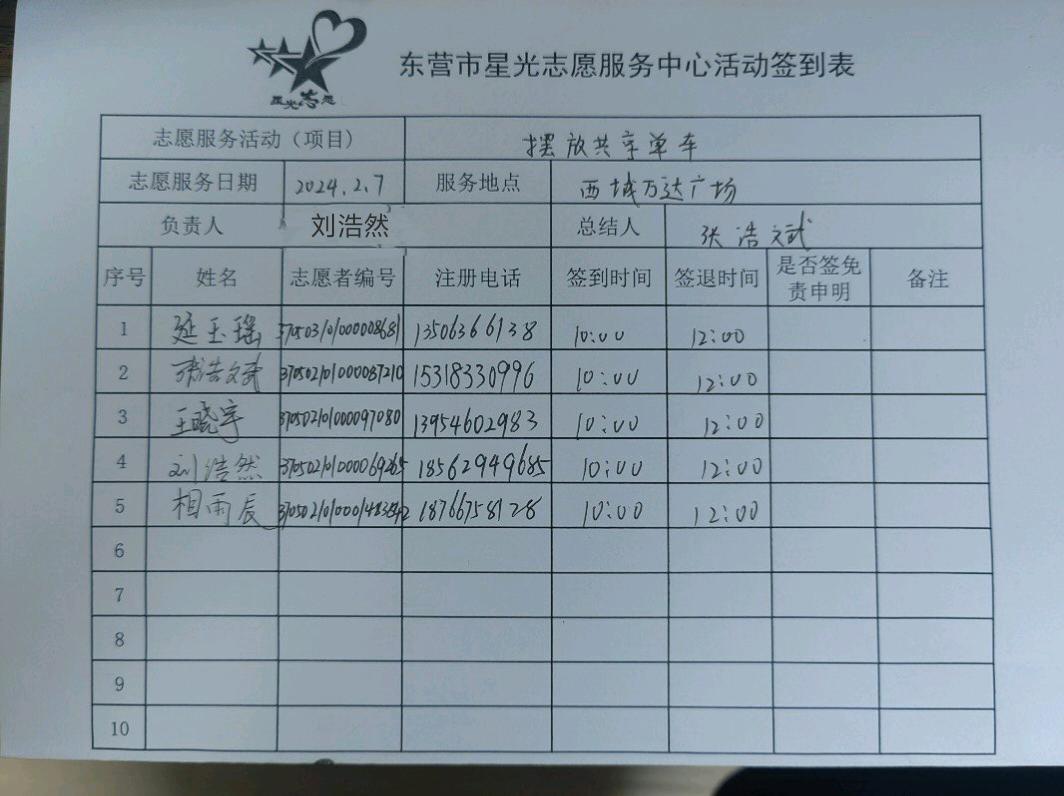 星光志愿
东营市星光志愿服务中心活动签到表
志愿服务活动（项目） 摆放共享单车
志愿服务日期 2024.2.7 服务地点 西城万达广场
负责人 刘浩然 总结人 张浩斌
序号 姓名 志愿者编号 注册电话 签到时间 签退时间 是否签免责申明 备注
1 延玉瑶 370503101000008681 13506366138 10:00 12:00
2 张浩斌 370502101000087210 15318330996 10:00 12:00
3 王晓宇 370502101000097080 13954602983 10:00 12:00
4 刘浩然 370502101000069265 18562949685 10:00 12:00
5 相雨辰 18766758128 10:00 12:00
6
7
8
9
10